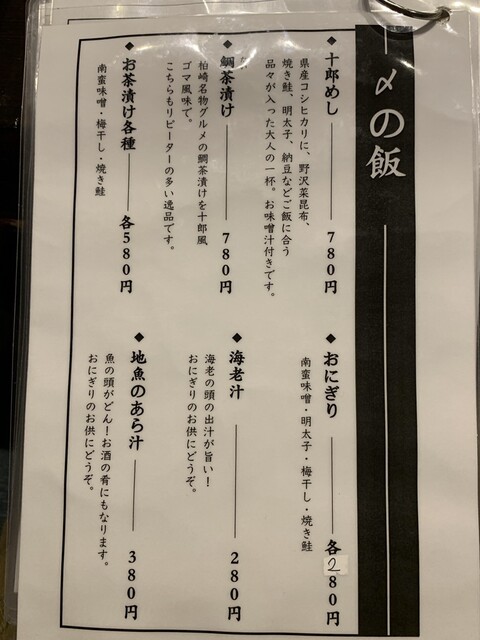 〆の飯
◆十郎めし 780円
県産コシヒカリに、野沢菜昆布、
焼き鮭、明太子、納豆などご飯に合う
品々が入った大人の一杯。お味噌汁付きです。
◆鯛茶漬け 780円
柏崎名物グルメの鯛茶漬けを十郎風
ゴマ風味で。
こちらもリピーターの多い逸品です。
◆お茶漬け各種 各580円
南蛮味噌・梅干し・焼き鮭
◆おにぎり 各280円
南蛮味噌・明太子・梅干し・焼き鮭
◆海老汁 280円
海老の頭の出汁が旨い!
おにぎりのお供にどうぞ。
◆地魚のあら汁 380円
魚の頭がどん!お酒の肴にもなります。
おにぎりのお供にどうぞ。